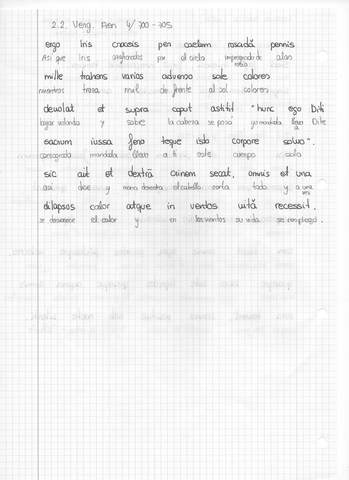 2.2. Verg. Aen 4/700-705
ergo Iris croceis per caelum roscidā pennis
Así que Iris por el cielo impregnada de alas
mille trahens varios adverso sole colores
mientras traza mil de frente al sol colores
devolat et supra caput astitit "hunc ego Diti
bajar volando y sobre la cabeza se posó yo mandada llevo a Dite
sacrum iussa fero teque isto corpore solvo".
consagrado mandada llevo a ti este cuerpo
sic ait et dextrā crinem secat, omnis et una
así dice y mano derecha el cabello corta todo y a una vez
dilapsus calor atque in ventos vitā recessit.
se desvanece el calor y en los vientos su vida se replegó.